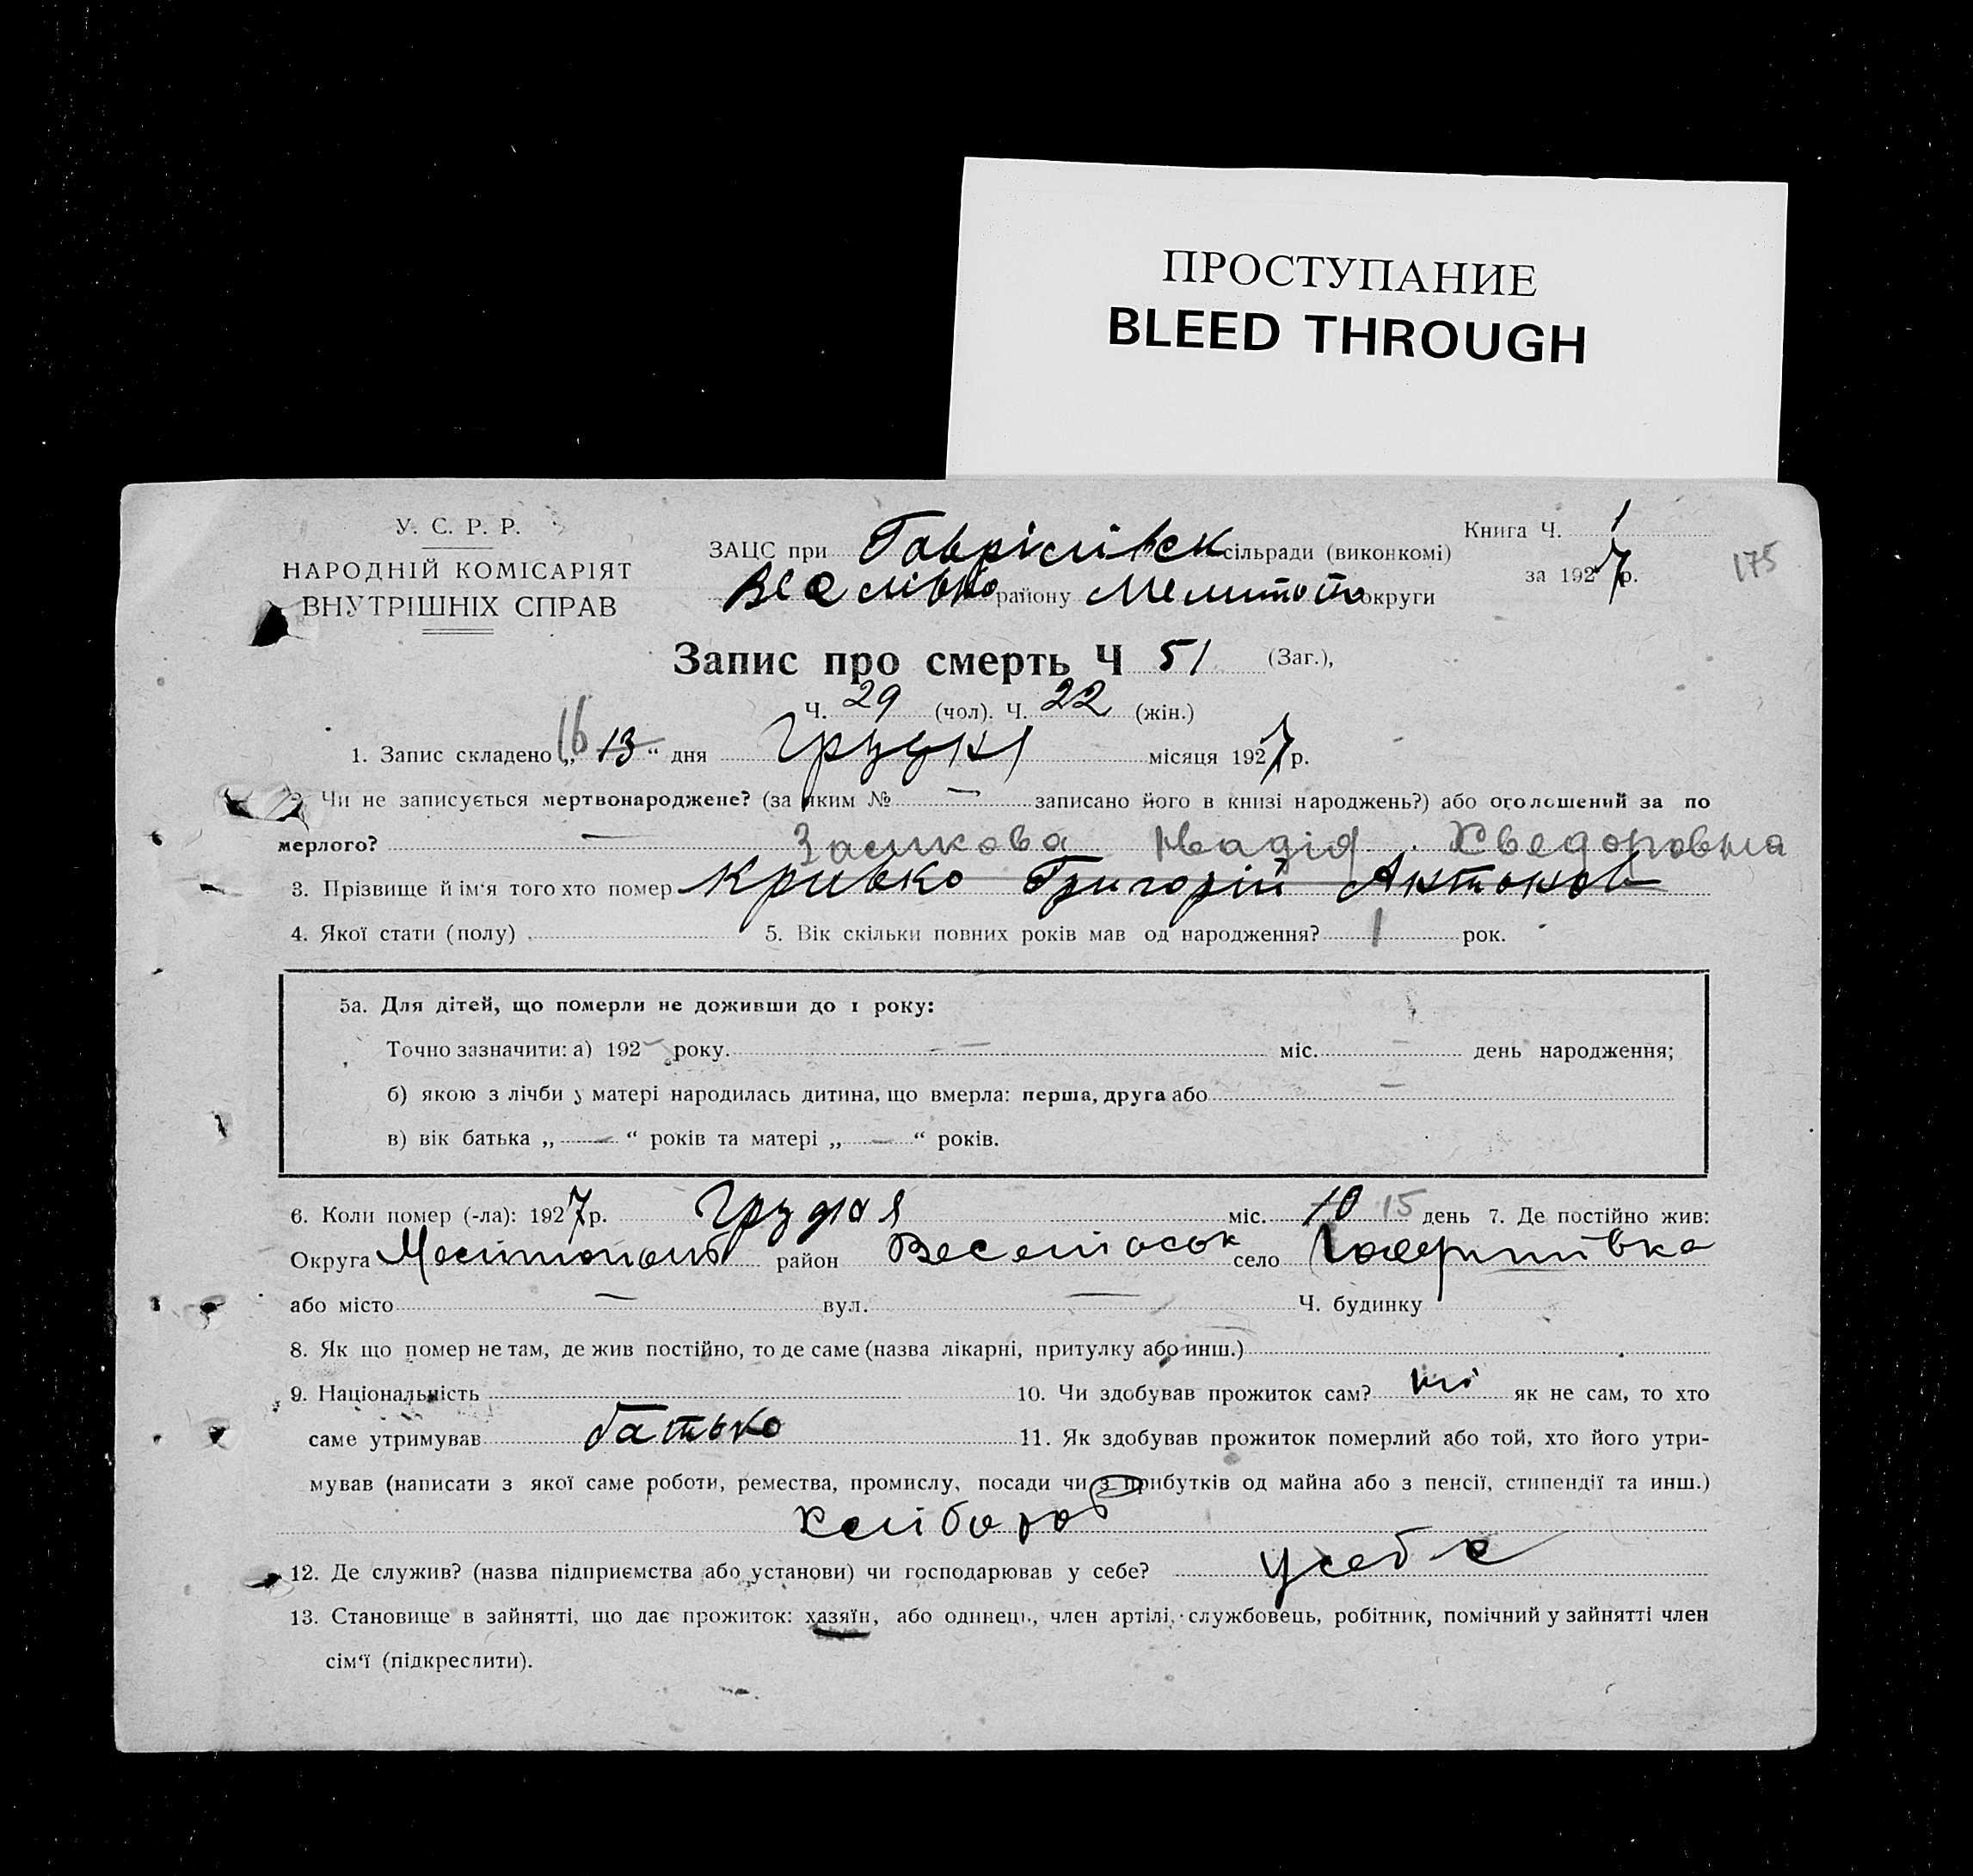 ПРОСТУПАНИЕ
BLEED THROUGH
У. С. Р. Р.
НАРОДНІЙ КОМІСАРІЯТ
ВНУТРІШНІХ СПРАВ
ЗАЦС при Гаврілівск сільради (виконкомі)
району Мелитоп округи
Книга Ч. 1
за 1927 р.
175
Запис про смерть Ч 51 (Заг.),
Ч. 29 (чол). Ч. 22 (жін.)
1. Запис складено „ 16 13 “ дня Грудня місяця 1927 р.
2. Чи не записується мертвонароджене? (за яким № — записано його в книзі народжень?) або оголошений за по
мерлого? — Надія Хведоровна
3. Прізвище й ім‘я того хто помер Кривко Григорій Антонов
4. Якої стати (полу) 5. Вік скільки повних років мав од народження? 1 рок.
5а. Для дітей, що померли не доживши до 1 року:
Точно зазначити: а) 192 — року. — міс. — день народження;
б) якою з лічби у матері народилась дитина, що вмерла: перша, друга або —
в) вік батька „ — “ років та матері „ — “ років.
6. Коли помер (-ла): 1927 р. Грудня міс. 10 15 день 7. Де постійно жив:
Округа Мелітополь район село Гаврилівка
або місто — вул. — Ч. будинку
8. Як що помер не там, де жив постійно, то де саме (назва лікарні, притулку або инш.)
9. Національність 10. Чи здобував прожиток сам? ні як не сам, то хто
саме утримував батько 11. Як здобував прожиток померлий або той, хто його утри-
мував (написати з якої саме роботи, ремества, промислу, посади чи з прибутків од майна або з пенсії, стипендії та инш.)
хлібороб
12. Де служив? (назва підприємства або установи) чи господарював у себе? у себе
13. Становище в зайнятті, що дає прожиток: хазяїн, або одинець, член артілі, службовець, робітник, помічний у зайнятті член
сім‘ї (підкреслити).